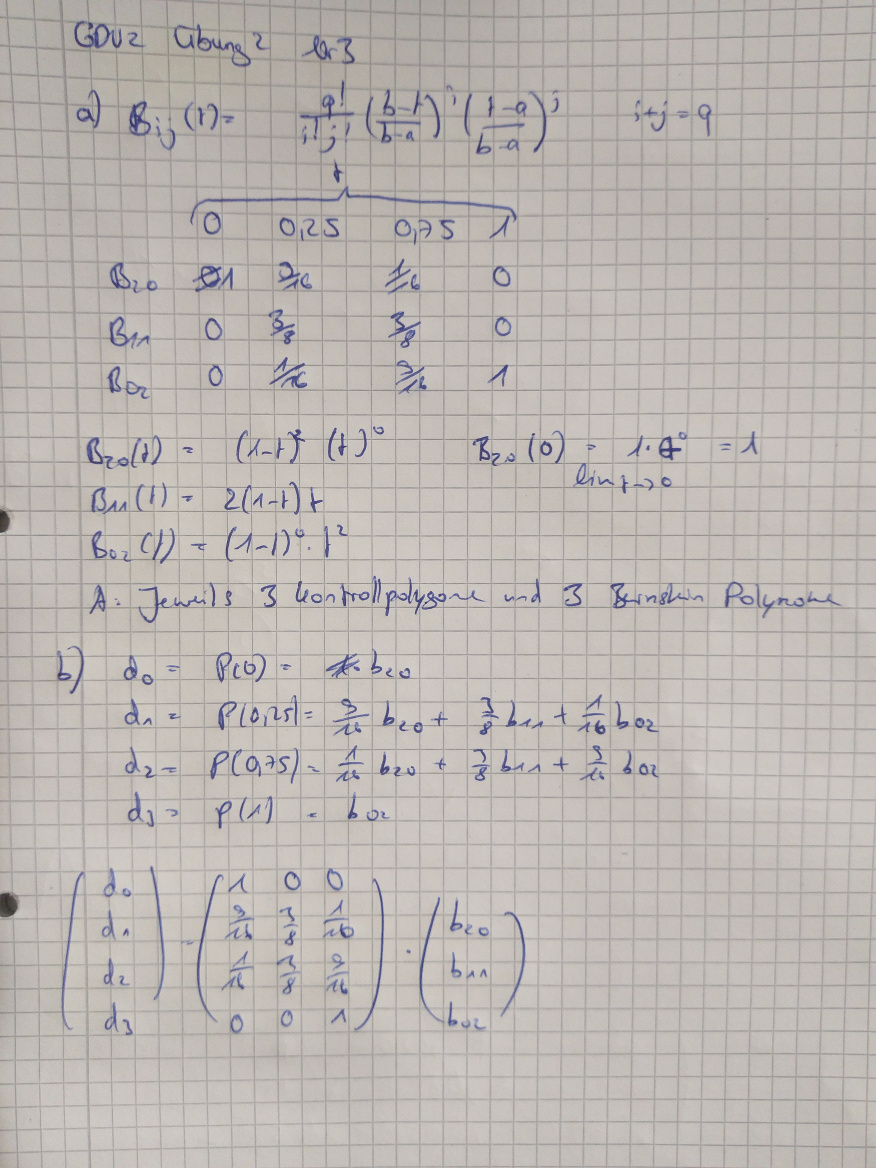 GDV2 Übung 2 Nr 3
a) Bij(t) = q!/(i! j!) ((b-t)/(b-a))^i ((t-a)/(b-a))^j i+j = q
t
0 0,25 0,75 1
B20 1 9/16 1/16 0
B11 0 3/8 3/8 0
B02 0 1/16 9/16 1
B20(t) = (1-t)² (t)⁰ B20(0) = 1·t⁰ = 1
lim t->0
B11(t) = 2(1-t)t
B02(t) = (1-t)⁰ · t²
A: Jeweils 3 Kontrollpolygone und 3 Bernstein Polynome
b) d0 = P(0) = b20
d1 = P(0,25) = 9/16 b20 + 3/8 b11 + 1/16 b02
d2 = P(0,75) = 1/16 b20 + 3/8 b11 + 9/16 b02
d3 = P(1) = b02
d0 1 0 0
d1 = 9/16 3/8 1/16 · b20
d2 1/16 3/8 9/16 b11
d3 0 0 1 b02